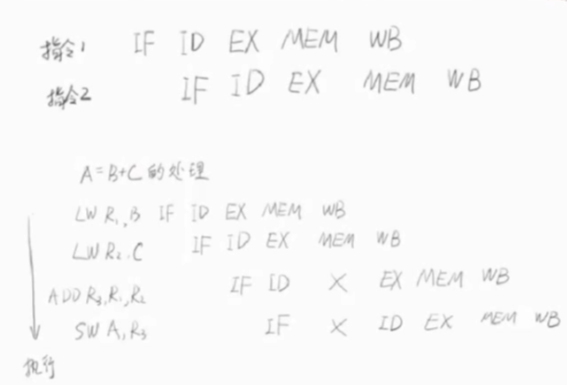 指令1 IF ID EX MEM WB
指令2 IF ID EX MEM WB
A=B+C的处理
LW R1,B IF ID EX MEM WB
LW R2.C IF ID EX MEM WB
ADD R3,R1,R2 IF ID X EX MEM WB
SW A,R3 IF X ID EX MEM WB
执行